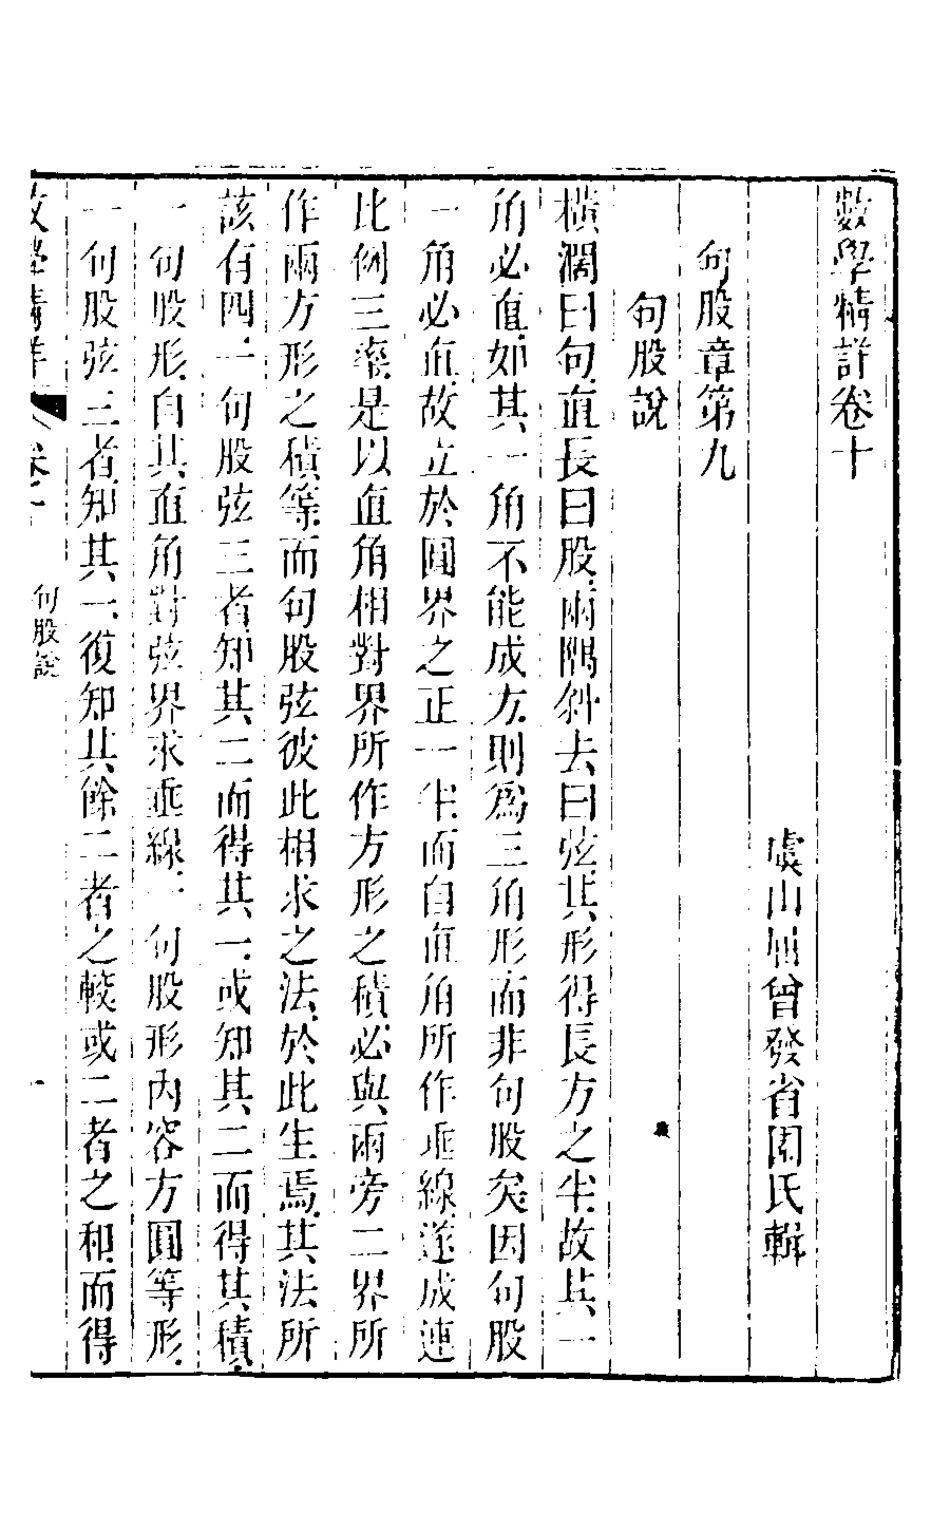 數學精詳卷十
虞山屈曾發省園氏輯
句股章第九
句股說
橫濶曰句直長曰股兩隅斜去曰弦其形得長方之半故其一
角必直如其一角不能成方則爲三角形而非句股矣因句股
一角必直故立於圓界之正一半而自直角所作垂線遂成連
比例三率是以直角相對界所作方形之積必與兩旁二界所
作兩方形之積等而句股弦彼此相求之法於此生焉其法所
該有四一句股弦三者知其二而得其一或知其二而得其積
一句股形自其直角對弦界求垂線一句股形內容方圓等形
一句股弦三者知其一復知其餘二者之較或二者之和而得
數學精詳 卷十 句股說 一